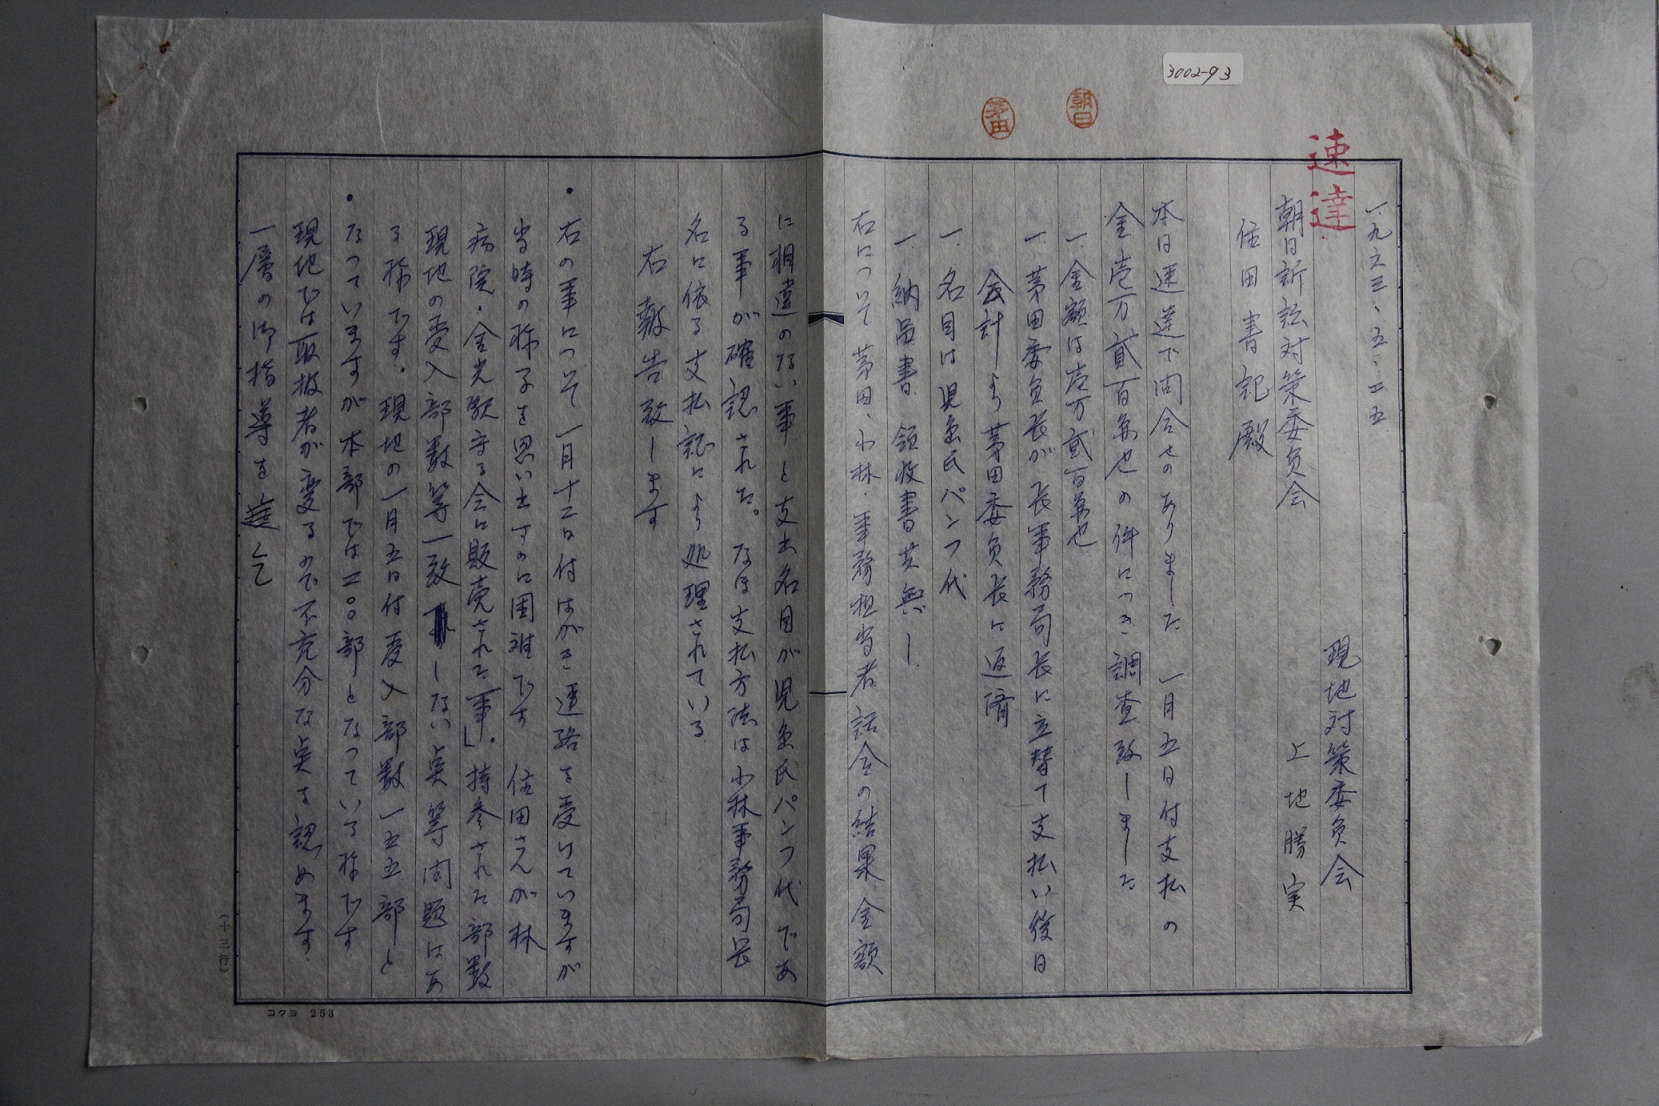 3002-93
朝日
茅田
速達
一九六三、五、二五
現地対策委員会
上地勝実
朝日訴訟対策委員会
住田書記殿
本日速達で問合せのありました 一月五日付支払の
金壱万貳百円也の件につき調査致しました
一. 金額は壱万貳百円也
一. 茅田委員長が長事務局長に立替て支払い後日
会計より茅田委員長に返済
一. 名目は児島氏パンフ代
一. 納品書、領收書共無し.
右について茅田、小林、事務担当者話合の結果金額
に相違のない事と支出名目が児島氏パンフ代であ
る事が確認された。なほ支払方法は小林事務局長
名に依る支払証により処理されている
右報告致します
・右の事について一月十二日付はがき連絡を受けていますが
当時の様子を思い出すのに困難です 住田さんが林
病院・金光歌守る会に販売された「事」.持参された部数
現地の受入部数等一致しない点等問題はあ
る様です.現地の一月五日付受入部数一五五部と
・なっていますが本部では二〇〇部となっている様です
現地では取扱者が変るので不充分な点を認めます.
一層の御指導を乞
(十三行)
コクヨ 253